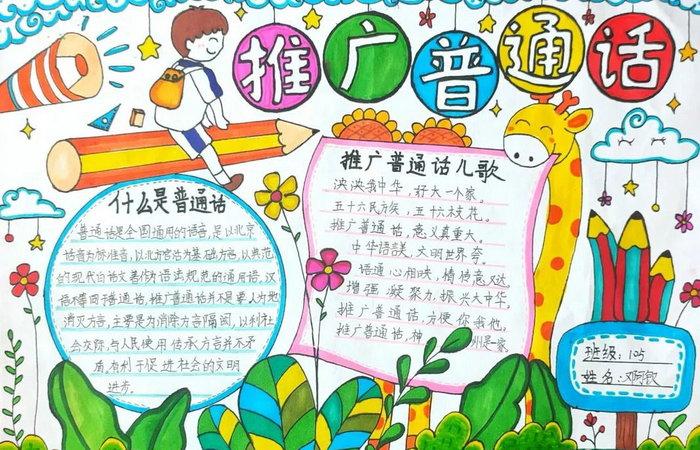 推广普通话
什么是普通话
普通话是全国通用的语言,是以北京
语音为标准音,以北方官话为基础方言,以典范
的现代白话文著作为语法规范的通用语,汉
语不等同于普通话,推广普通话并不是要人为地
消灭方言,主要是为消除方言隔阂,以利社
会交际,与人民使用传承方言并不矛
盾,有利于促进社会的文明
进步。
推广普通话儿歌
泱泱我中华,好大一个家。
五十六民族,五十六支花。
推广普通话,意义真重大。
中华语言美,文明世界夸。
语通心相映,情传意又达
增强凝聚力,振兴大中华。
推广普通话,方便你我他。
推广普通话,神 州是一家
班级:105
姓名:邓